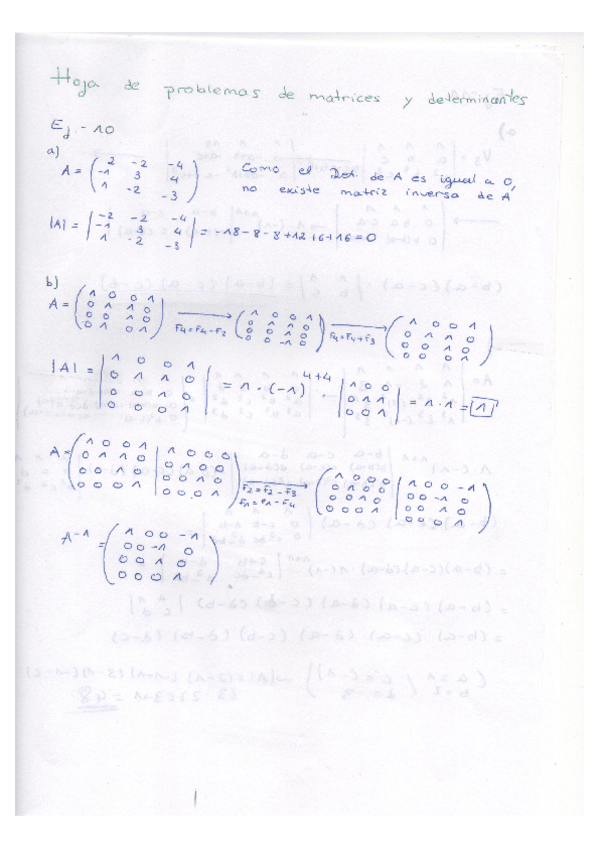 Hoja de problemas de matrices y determinantes
Ej.- 10
a)
A = ( 2 -2 -4 Como el Det. de A es igual a 0,
-1 3 4 no existe matriz inversa de A
1 -2 -3 )
|A| = | -2 -2 -4
-1 3 4
1 -2 -3 | = -18-8-8+12+6+16=0
b)
A = ( 1 0 0 1
0 1 1 0
0 0 1 0
0 1 0 1 ) → F4=F4-F2 ( 1 0 0 1
0 1 1 0
0 0 1 0
0 0 -1 0 ) → F4=F4+F3 ( 1 0 0 1
0 1 1 0
0 0 1 0
0 0 0 1 )
|A| = | 1 0 0 1
0 1 1 0
0 0 1 0
0 0 0 1 | = 1 · (-1)^4+4 · | 1 0 0
0 1 1
0 0 1 | = 1·1 = 1
A = ( 1 0 0 1 | 1 0 0 0
0 1 1 0 | 0 1 0 0
0 0 1 0 | 0 0 1 0
0 0 0 1 | 0 0 0 1 ) → F2=F2-F3
F1=F1-F4 ( 1 0 0 0 | 1 0 0 -1
0 1 0 0 | 0 0 -1 0
0 0 1 0 | 0 0 1 0
0 0 0 1 | 0 0 0 1 )
A-1 = ( 1 0 0 -1
0 0 -1 0
0 0 1 0
0 0 0 1 )